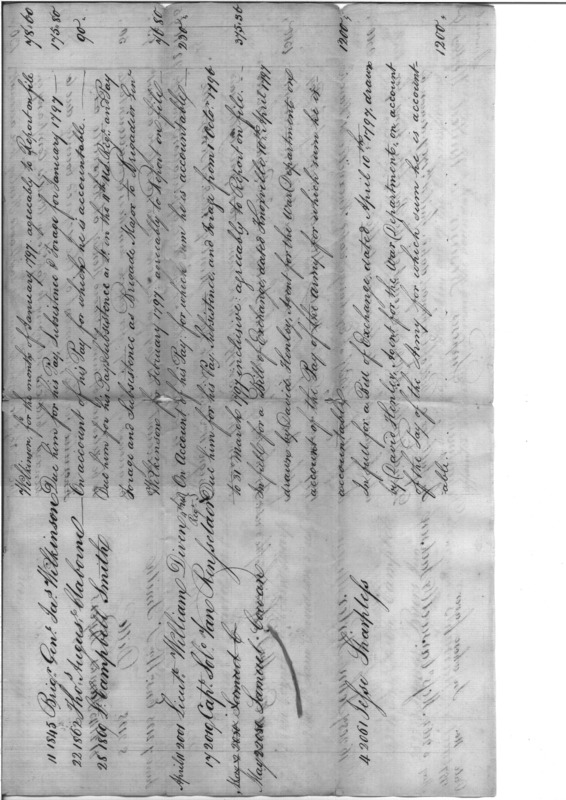 Wilkinson, for the month of January 1797 agreeably to Report on file 78.60
11 1845 Brigr. Genl. Jas. Wilkinson Due him for his Pay, Subsistence & forage for January 1797 175.80
22 1862 Thos. Augus. Claborne On account of his Pay for which he is accountable 90.
28 1860 Lt. Campbell Smith Due him for his Pay & Subsistence as Lt. in the 4th U.S. Regt. and Pay
Forage and Subsistence as Brigade Major to Brigadier Genl.
Wilkinson February 1797 agreeably to Report on file 76.80
April 11 2001 Lieutt. William Diven On Account of his Pay, for which sum he is accountable 230.
17 2010 Capt. Solo. Van Rensselaer Due him for his Pay Subsistence, and Forage from 1 Octo. 1796
to 31 March 1797 inclusive agreeably to Report on file. 373.36
May 2 2050 Samuel C
May 2 2050 Samuel Cowan In full for a Bill of Exchange, dated Knoxville 10th. April 1797
drawn by David Henley, Agent for the War Department on
account of the Pay of the army for which sum he is
accountable 1200.
4 2061 Jesse Sharpless In full for a Bill of Exchange dated April 10th 1797, drawn
by David Henley, Agent for the War Department, on account
of the Pay of the Army for which sum he is account-
able. 1200.